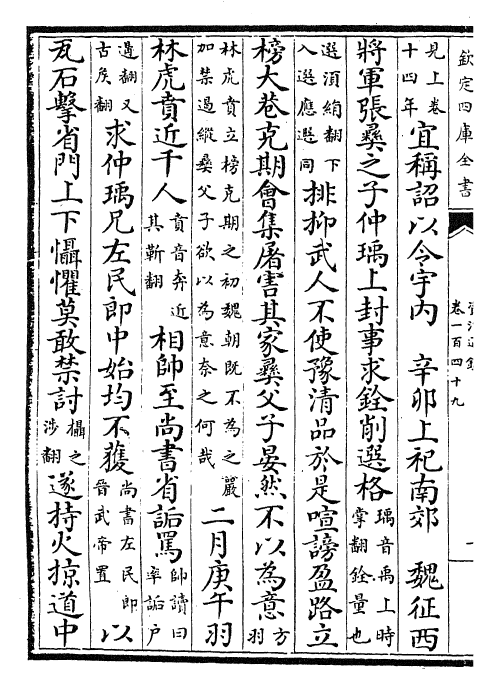 欽定四庫全書
資治通鑑
卷一百四十九
一
見上卷十四年宜稱詔以令宇内　辛卯上祀南郊　魏征西
將軍張彞之子仲瑀上封事求銓削選格瑀音禹上時掌翻銓量也
選須絹翻下入選應選同排抑武人不使豫清品於是喧謗盈路立
榜大巷克期會集屠害其家彞父子晏然不以為意方羽
林虎賁立榜克期之初魏朝既不為之嚴加禁遏縱彞父子欲以為意奈之何哉二月庚午羽
林虎賁近千人賁音奔近其靳翻相帥至尚書省詬罵帥讀曰率詬戶
遘翻又古矦翻求仲瑀兄左民郎中始均不獲尚書左民郎晉武帝置以
瓦石擊省門上下懾懼莫敢禁討懾之涉翻遂持火掠道中